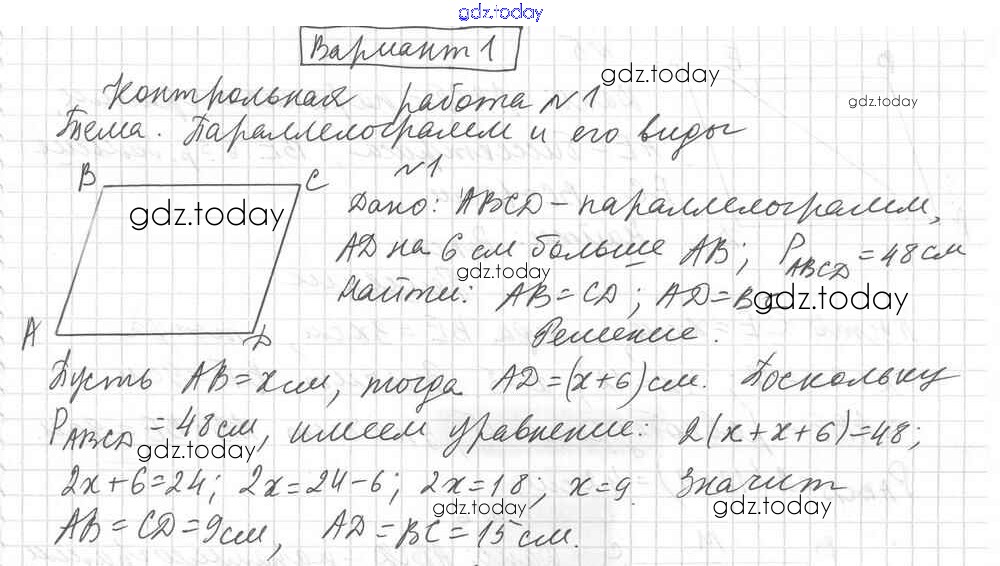 gdz.today
Вариант 1
gdz.today
Контрольная работа №1
gdz.today
Тема. Параллелограмм и его виды
№1
B C
gdz.today
Дано: ABCD – параллелограмм,
AD на 6 см больше AB; P_ABCD = 48 см
gdz.today
Найти: AB = CD; AD = BC
gdz.today
A D
Решение.
Пусть AB = x см, тогда AD = (x+6) см. Поскольку
P_ABCD = 48 см, имеем уравнение: 2(x+x+6)=48;
gdz.today
2x+6=24; 2x=24-6; 2x=18; x=9. Значит
gdz.today
AB = CD = 9 см, AD = BC = 15 см.
gdz.today